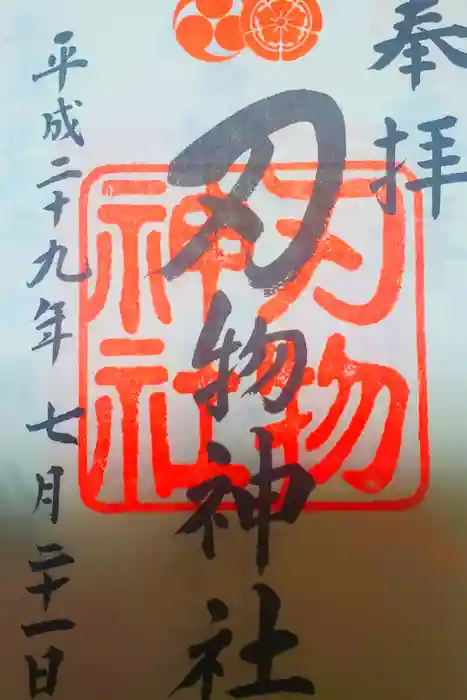 奉拝
刃物神社
平成二十九年七月二十一日
刃物
神社